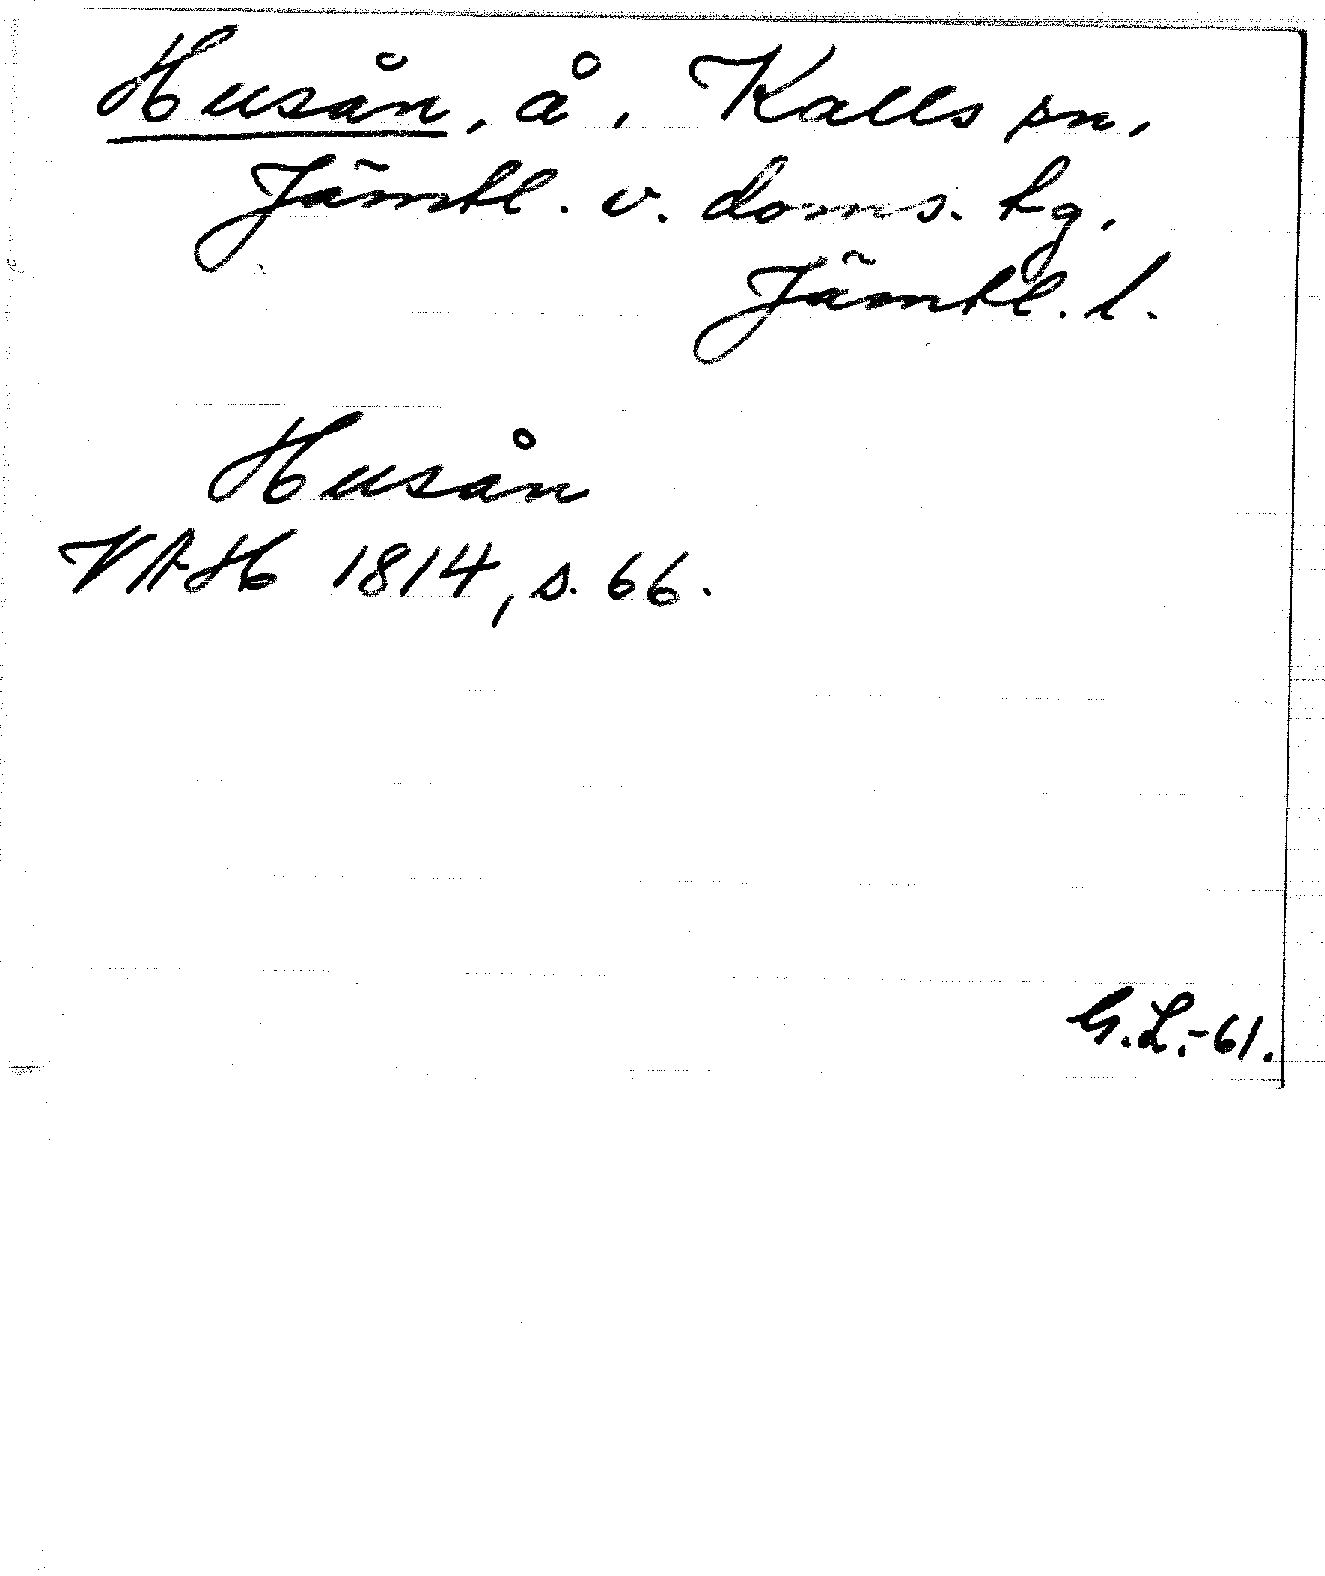 Husån, å, Kalls sn,
Jämtl. v. doms. tg.
Jämtl. l.
Husån
VAH 1814, s. 66.
G.L.-61.